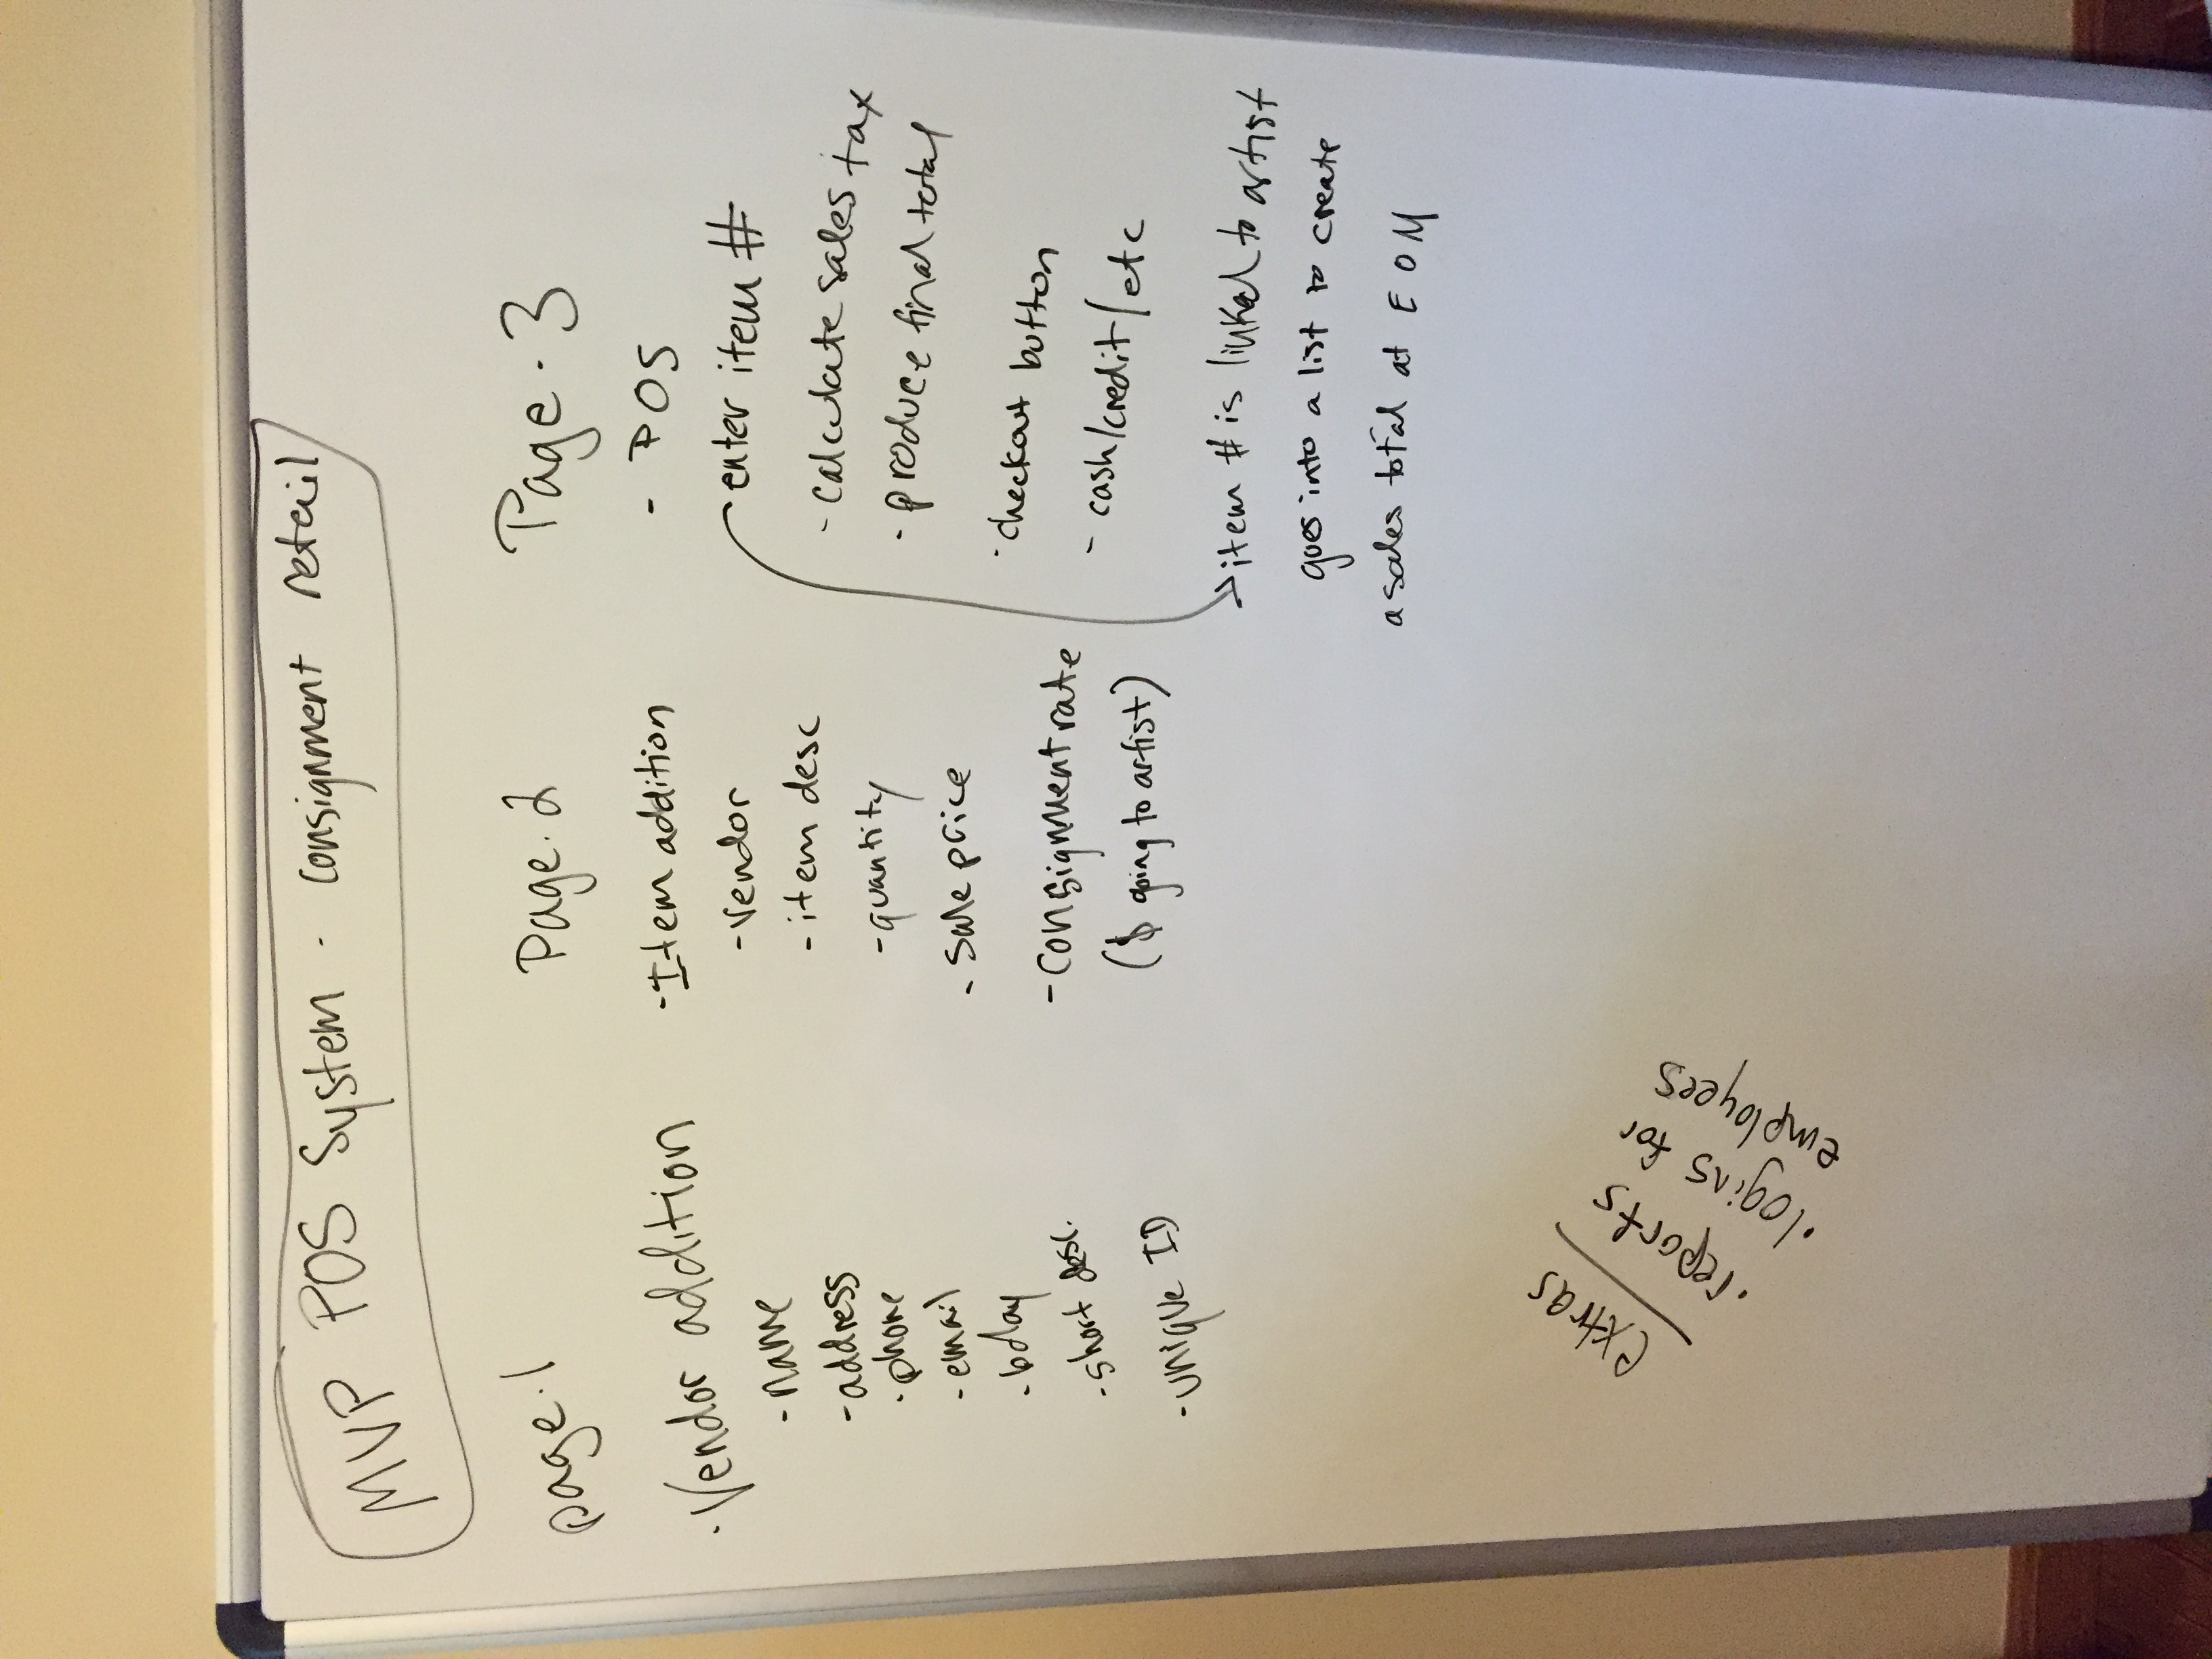 MVP POS System - consignment retail
page.1
· Vendor addition
- name
- address
· phone
- email
- bday
- short desc.
- unique ID
Page.2
- Item addition
- vendor
- item desc
- quantity
- sale price
- consignment rate
($ going to artist)
Page.3
- POS
enter item #
- calculate sales tax
- produce final total
· checkout button
- cash/credit/etc
item # is linked to artist
goes into a list to create
a sales total at EOM
extras
· reports
· logins for
employees